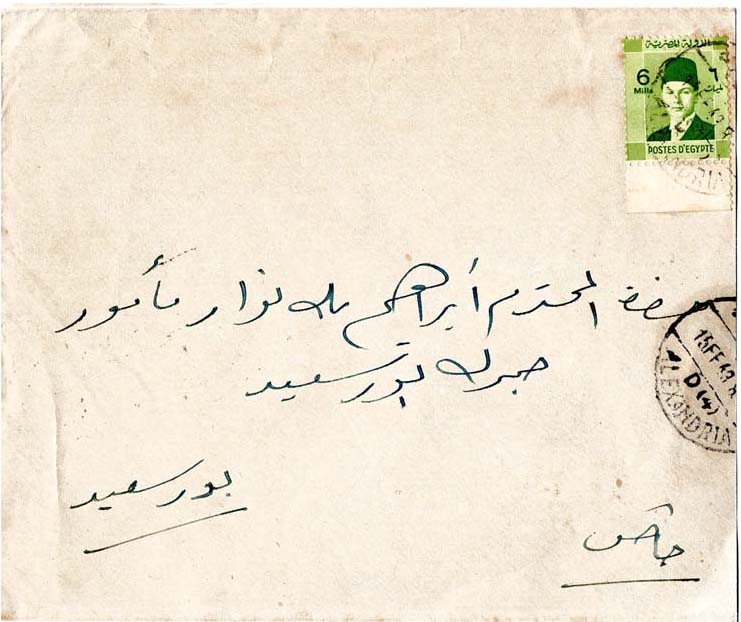 الدولة المصرية
6 ٦
Mills مليمات
POSTES D'EGYPTE
حضرة المحترم أبراهيم بك نوار مأمور
جمرك بور سعيد
15 FE 43
D (4)
ALEXANDRIA
بور سعيد
خاص